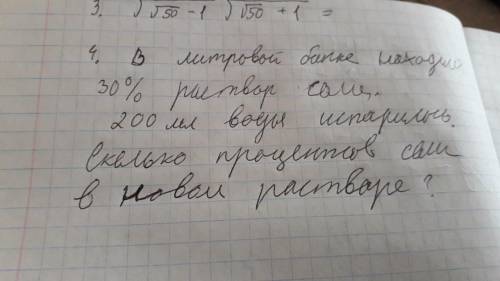 3. √(√50 - 1) √(√50 + 1) =
4. В литровой банке находило
30% раствор соли.
200 мл воды испарилось.
Сколько процентов соли
в новом растваре?